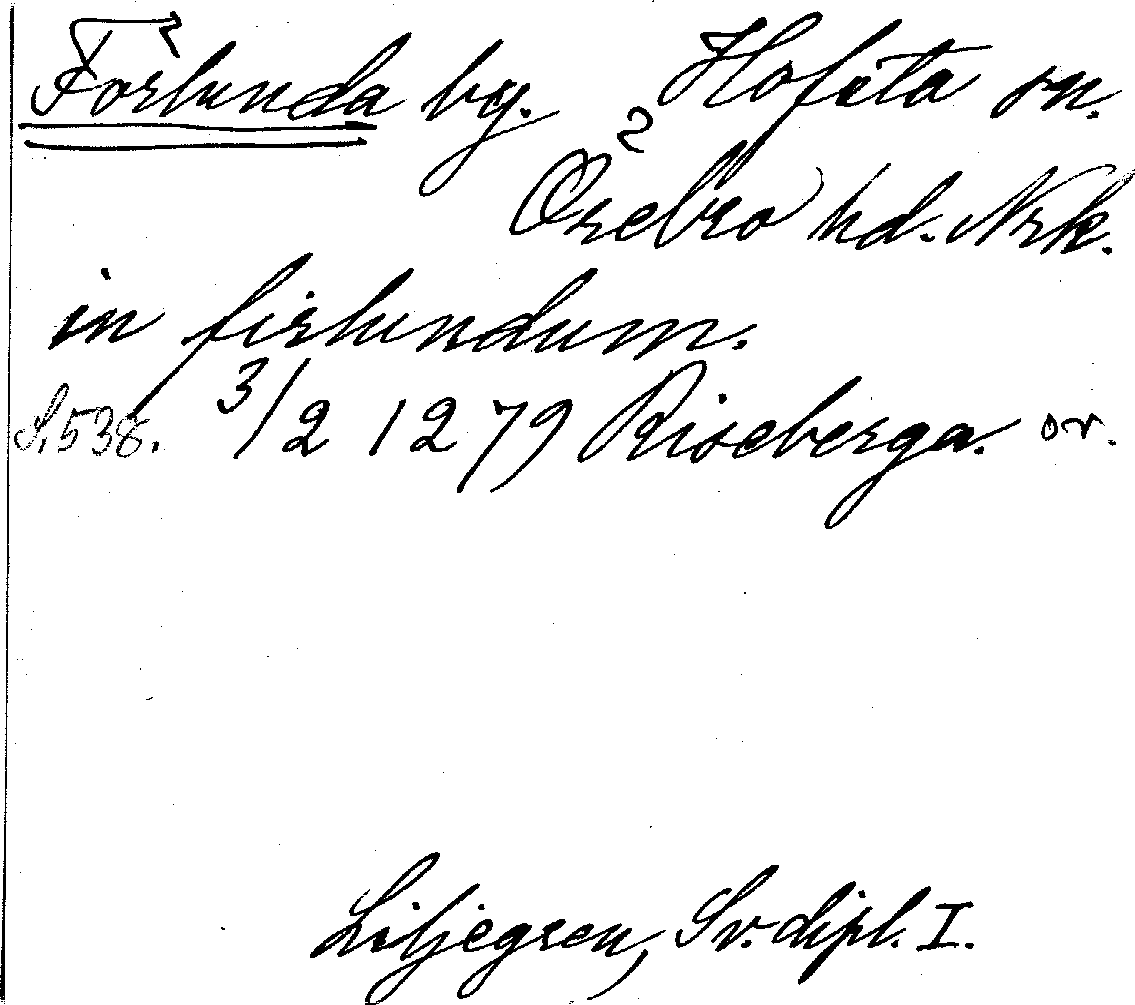 Förlunda by. Hofsta sn.
Örebro hd. Nrk.
in firlundum.
S. 538. 3/2 1279 Riseberga. or.
Liljegren, Sv. dipl. I.